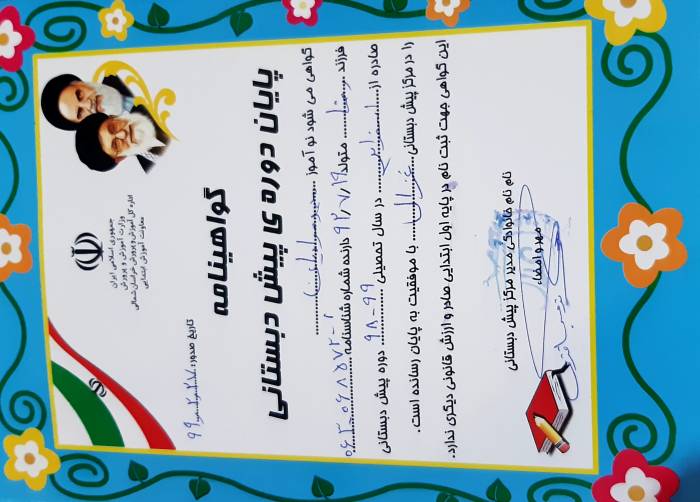 جمهوری اسلامی ایران
وزارت آموزش و پرورش
اداره کل آموزش و پرورش خراسان شمالی
معاونت آموزش ابتدایی
تاریخ صدور:
گواهینامه
پایان دوره ی پیش دبستانی
گواهی می شود نو آموز
فرزند متولد ۹۲,۷,۱۹ دارنده شماره شناسنامه
صادره از در سال تحصیلی ۹۸-۹۹ دوره پیش دبستانی
را در مرکز پیش دبستانی غزال با موفقیت به پایان رسانده است.
این گواهی جهت ثبت نام در پایه اول ابتدایی صادر و ارزش قانونی دیگری ندارد.
نام نام خانوادگی مدیر مرکز پیش دبستانی
مهر و امضاء